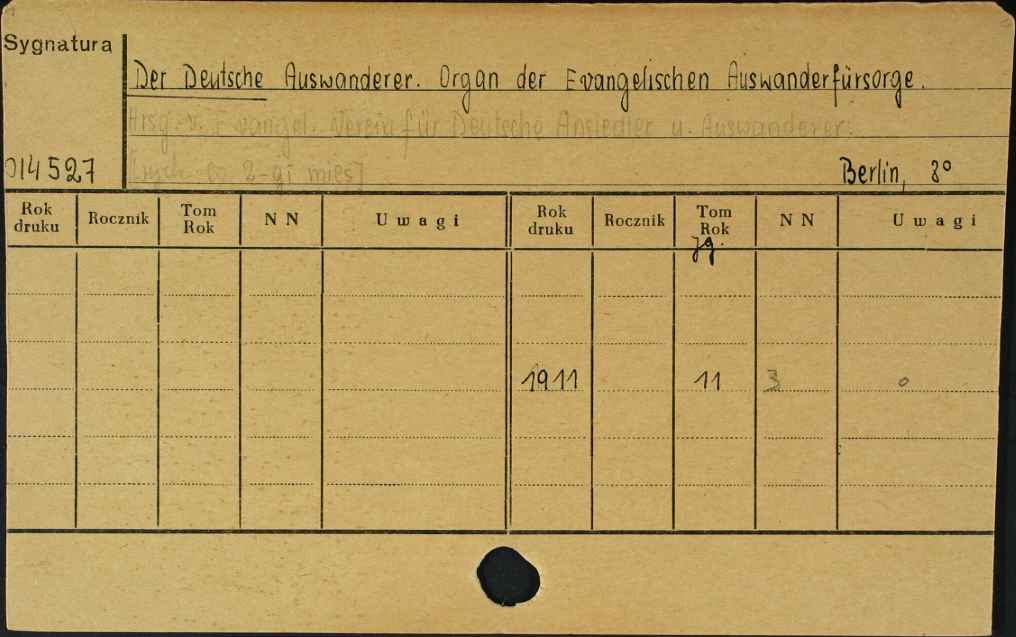 Sygnatura
Der Deutsche Auswanderer. Organ der Evangelischen Auswanderfürsorge.
Hrsg. v. Evangel. Verein für Deutsche Ansiedler u. Auswanderer.
014527
[wych. co 2-gi mies]
Berlin, 8°
Rok druku Rocznik Tom Rok NN Uwagi Rok druku Rocznik Tom Rok NN Uwagi
Jg.
1911 11 3 o